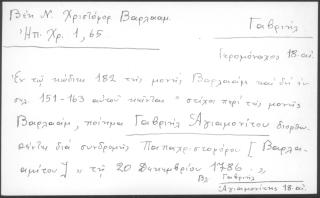 Βέη Ν. Χριστόφορ Βαρλααμ.
Γαβριήλ
Ἠπ. Χρ. 1, 65
Ἱερομόναχος 18 αἰ.
Ἐν τῷ κώδικι 182 τῆς μονῆς Βαρλαὰμ καὶ δὴ ἐν
σελ. 151-163 αὐτοῦ κεῖνται "στίχοι περὶ τῆς μονῆς
Βαρλαάμ, ποίημα Γαβριὴλ Ἁγιαμονίτου διορθω-
θέντες διὰ συνδρομῆς Παπαχριστοφόρου [Βαρλα-
αμίτου] " τῇ 20 Δεκεμβρίου 1786".
Βλ Γαβριήλ
Ἁγιαμονίτης 18 αἰ.